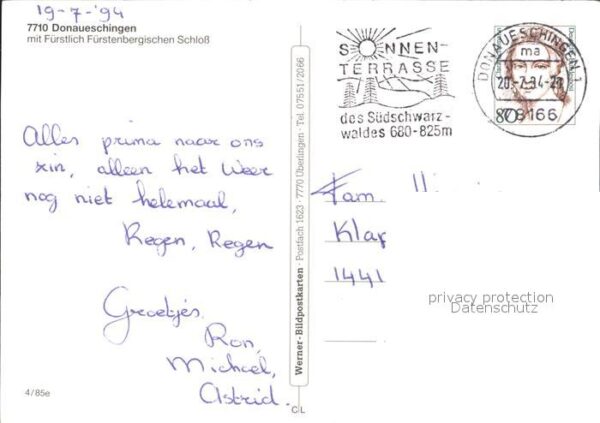 19-7-'94
7710 Donaueschingen
mit Fürstlich Fürstenbergischen Schloß
Alles prima naar ons
zin, alleen het Weer
nog niet helemaal,
Regen, Regen
Groetjes.
Ron,
Michael,
Astrid.
4/85e
Werner-Bildpostkarten · Postfach 1623 · 7770 Überlingen · Tel. 07551/2066
CL
SONNEN-
TERRASSE
des Südschwarz-
waldes 680-825m
DONAUESCHINGEN 1
ma
20.-7.94-2
78166
80
Fam.
Klar
1441
privacy protection
Datenschutz